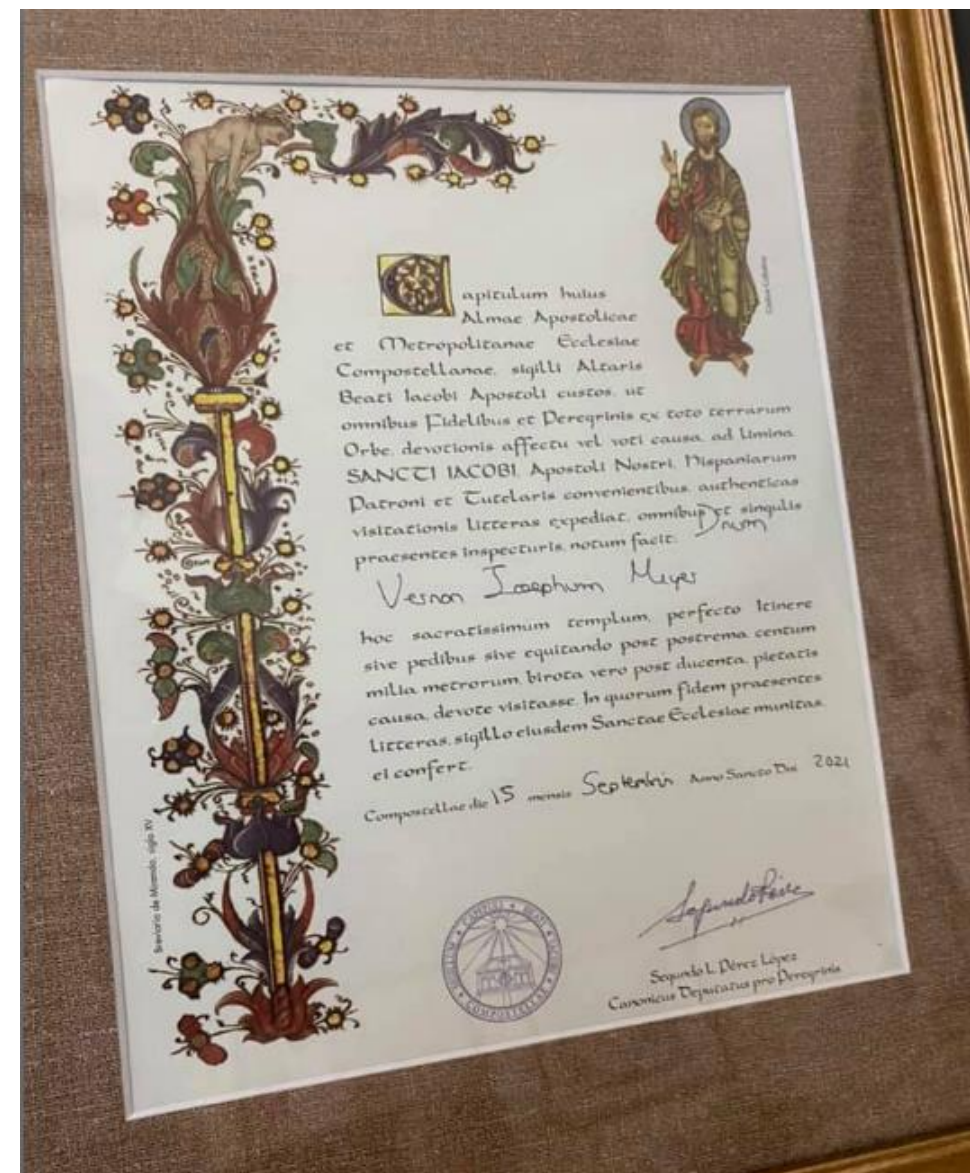 Capitulum huius
Almae Apostolicae
et Metropolitanae Ecclesiae
Compostellanae, sigilli Altaris
Beati Iacobi Apostoli custos, ut
omnibus Fidelibus et Peregrinis ex toto terrarum
Orbe, devotionis affectu vel voti causa, ad limina
SANCTI IACOBI, Apostoli Nostri, Hispaniarum
Patroni et Tutelaris convenientibus, authenticas
visitationis litteras expediat, omnibus et singulis
praesentes inspecturis, notum facit: Dnum
Vernon Iosephum Meyer
hoc sacratissimum templum, perfecto Itinere
sive pedibus sive equitando post postrema centum
milia metrorum, birota vero post ducenta, pietatis
causa, devote visitasse. In quorum fidem praesentes
litteras, sigillo eiusdem Sanctae Ecclesiae munitas,
ei confert.
Compostellae die 15 mensis Septembris Anno Sancto Dni 2021
Segundo L. Pérez López
Canonicus Deputatus pro Peregrinis
Breviario de Miranda, siglo XV
SIGILLUM CAPITULI BEATI IACOBI COMPOSTELLAE